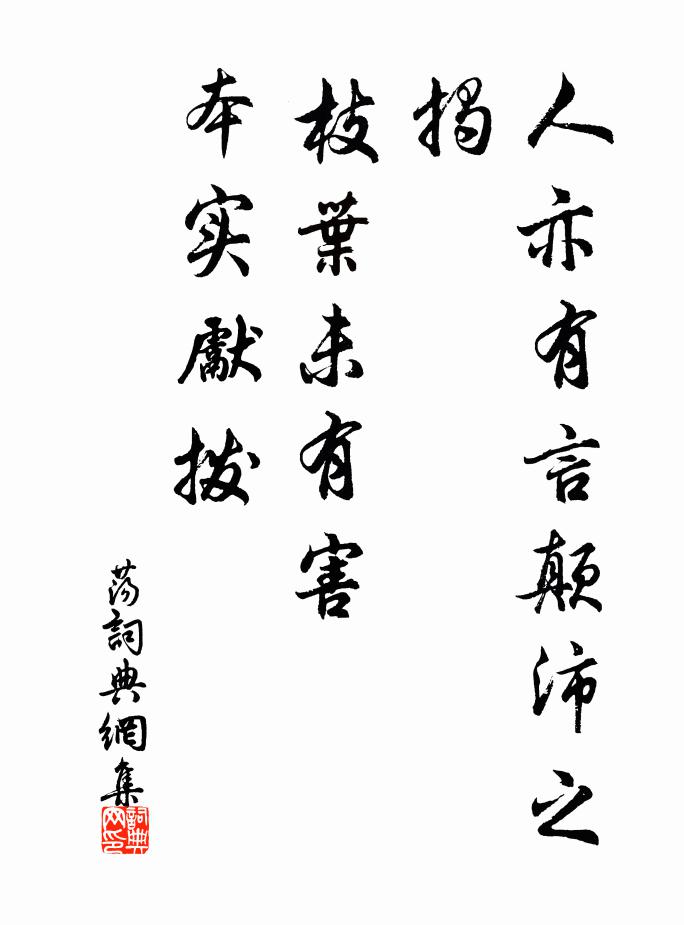 人亦有言顛沛之
揭
枝葉未有害
本实獻拨
荡詞典網集
詞典
网印